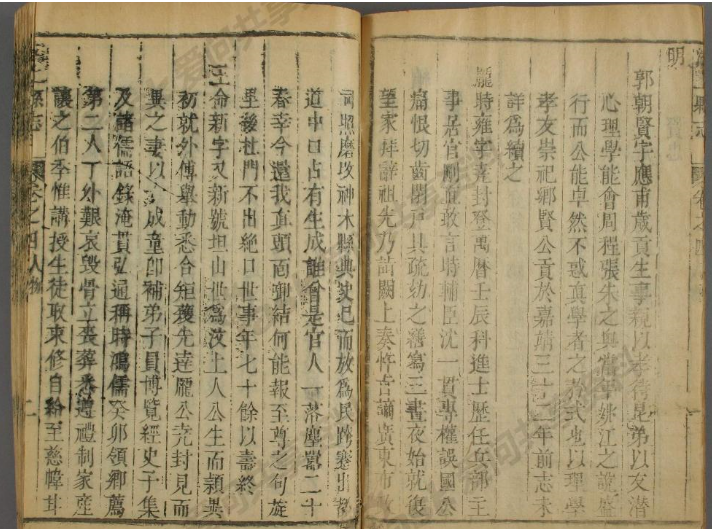 明
郭朝賢字應甫歲貢生事親以孝待昆弟以友潛
心理學能會周程張朱之與當寧姚江之說盛
行而公能卓然不惑真學者之 式也以理學
孝友崇祀鄉賢公貢於嘉靖三十 年前志未
詳爲續之
龐時雍字熹封登萬曆壬辰科進士歷任兵部主
事居官剛直敢言時輔臣沈一貫專權誤國公
痛恨切齒閉戸具疏幼之繕寫三晝夜始就復
望家拜辭祖先乃詣闕上奏忤旨謫廣東市
司照磨攻神木縣典史已而放爲民跨蹇出
道中口占有生成誰會是官人一落塵囂二十
春幸今還我真頭面卸結何能報至尊之句旋
里後杜門不出絕口世事年七十餘以壽終
王命新字又新號坦山世爲汶上人公生而穎異
初就外傅舉動悉合矩矱先達龐公克封見而
異之妻以女成童卽補弟子員博覽經史子集
及諸儒語錄淹貫弘通稱時鴻儒癸卯領鄉薦
第二人丁外艱哀毀骨立喪葬悉遵禮制家産
讓之伯季惟講授生徒取束修自給至慈幃
縣志 卷之四 人物 二